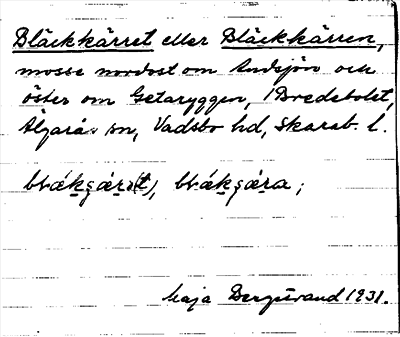 Bläckkärret eller Bläckkärren,
mosse nordost om Andsjön och
öster om Getaryggen, /Bredebolet,
Älgarås sn, Vadsbo hd, Skarab. l.
Maja Bergstrand 1931.